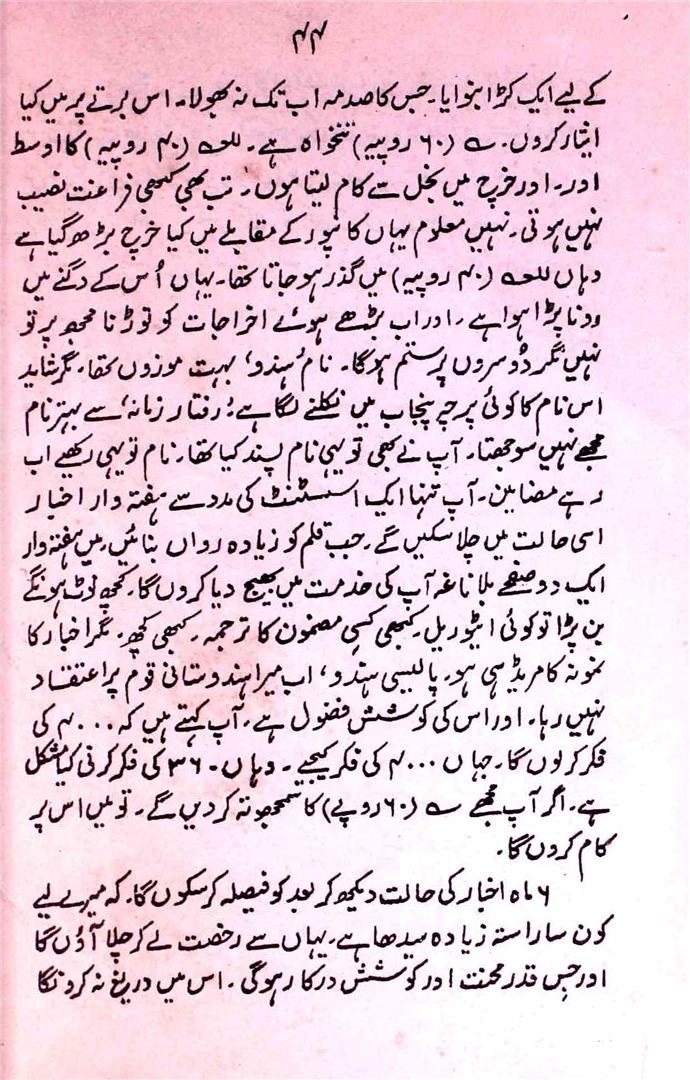 ۴۴
کے لیے ایک کڑا بنوایا۔ جس کا صدمہ اب تک نہ بھولا۔ اس برتے پر میں کیا
ایثار کروں۔ (۶۰ روپیہ) تنخواہ ہے۔ للعہ (۴۰ روپیہ) کا اوسط
اور۔ اور خرچ میں بخل سے کام لیتا ہوں۔ تب بھی کبھی فراغت نصیب
نہیں ہوتی۔ نہیں معلوم یہاں کانپور کے مقابلے میں کیا خرچ بڑھ گیا ہے
وہاں للعہ (۴۰ روپیہ) میں گذر ہو جاتا تھا۔ یہاں اُس کے دگنے میں
رونا پڑا ہوا ہے۔ اور اب بڑھے ہوئے اخراجات کو توڑنا مجھ پر تو
نہیں مگر دُوسروں پر ستم ہوگا۔ نام ’ہندو‘ بہت موزوں تھا۔ مگر شاید
اس نام کا کوئی پرچہ پنجاب میں نکلنے لگا ہے؛ ’رفتار زمانہ‘ سے بہتر نام
مجھے نہیں سوجھتا۔ آپ نے بھی تو یہی نام پسند کیا تھا۔ نام تو یہی رکھیے اب
رہے مضامین۔ آپ تنہا ایک اسسٹنٹ کی مدد سے ہفتہ وار اخبار
اسی حالت میں چلا سکیں گے۔ جب قلم کو زیادہ رواں بنائیں۔ میں ہفتہ وار
ایک دو صفحے بلا ناغہ آپ کی خدمت میں بھیج دیا کروں گا۔ کچھ نوٹ ہونگے
بن پڑا تو کوئی ایٹوریل۔ کبھی کسی مضمون کا ترجمہ۔ کبھی کچھ۔ مگر اخبار کا
نمونہ کامریڈ سی ہو۔ پالیسی ہندو‘ اب میرا ہندوستانی قوم پر اعتقاد
نہیں رہا۔ اور اس کی کوشش فضول ہے۔ آپ کہتے ہیں کہ ۴۰۰۰ کی
فکر کر لوں گا۔ جہاں ۴۰۰۰ کی فکر کیجیے۔ وہاں ۔۳۶ کی فکر کرنی کیا مشکل
ہے۔ اگر آپ مجھے (۶۰ روپے) کا سمجھوتہ کر دیں گے۔ تو میں اس پر
کام کروں گا۔
۶ ماہ اخبار کی حالت دیکھ کر بعد کو فیصلہ کر سکوں گا۔ کہ میرے لیے
کون سا راستہ زیادہ سیدھا ہے۔ یہاں سے رخصت لے کر چلا آؤں گا
اور جس قدر محنت اور کوشش درکار ہوگی۔ اس میں دریغ نہ کرونگا